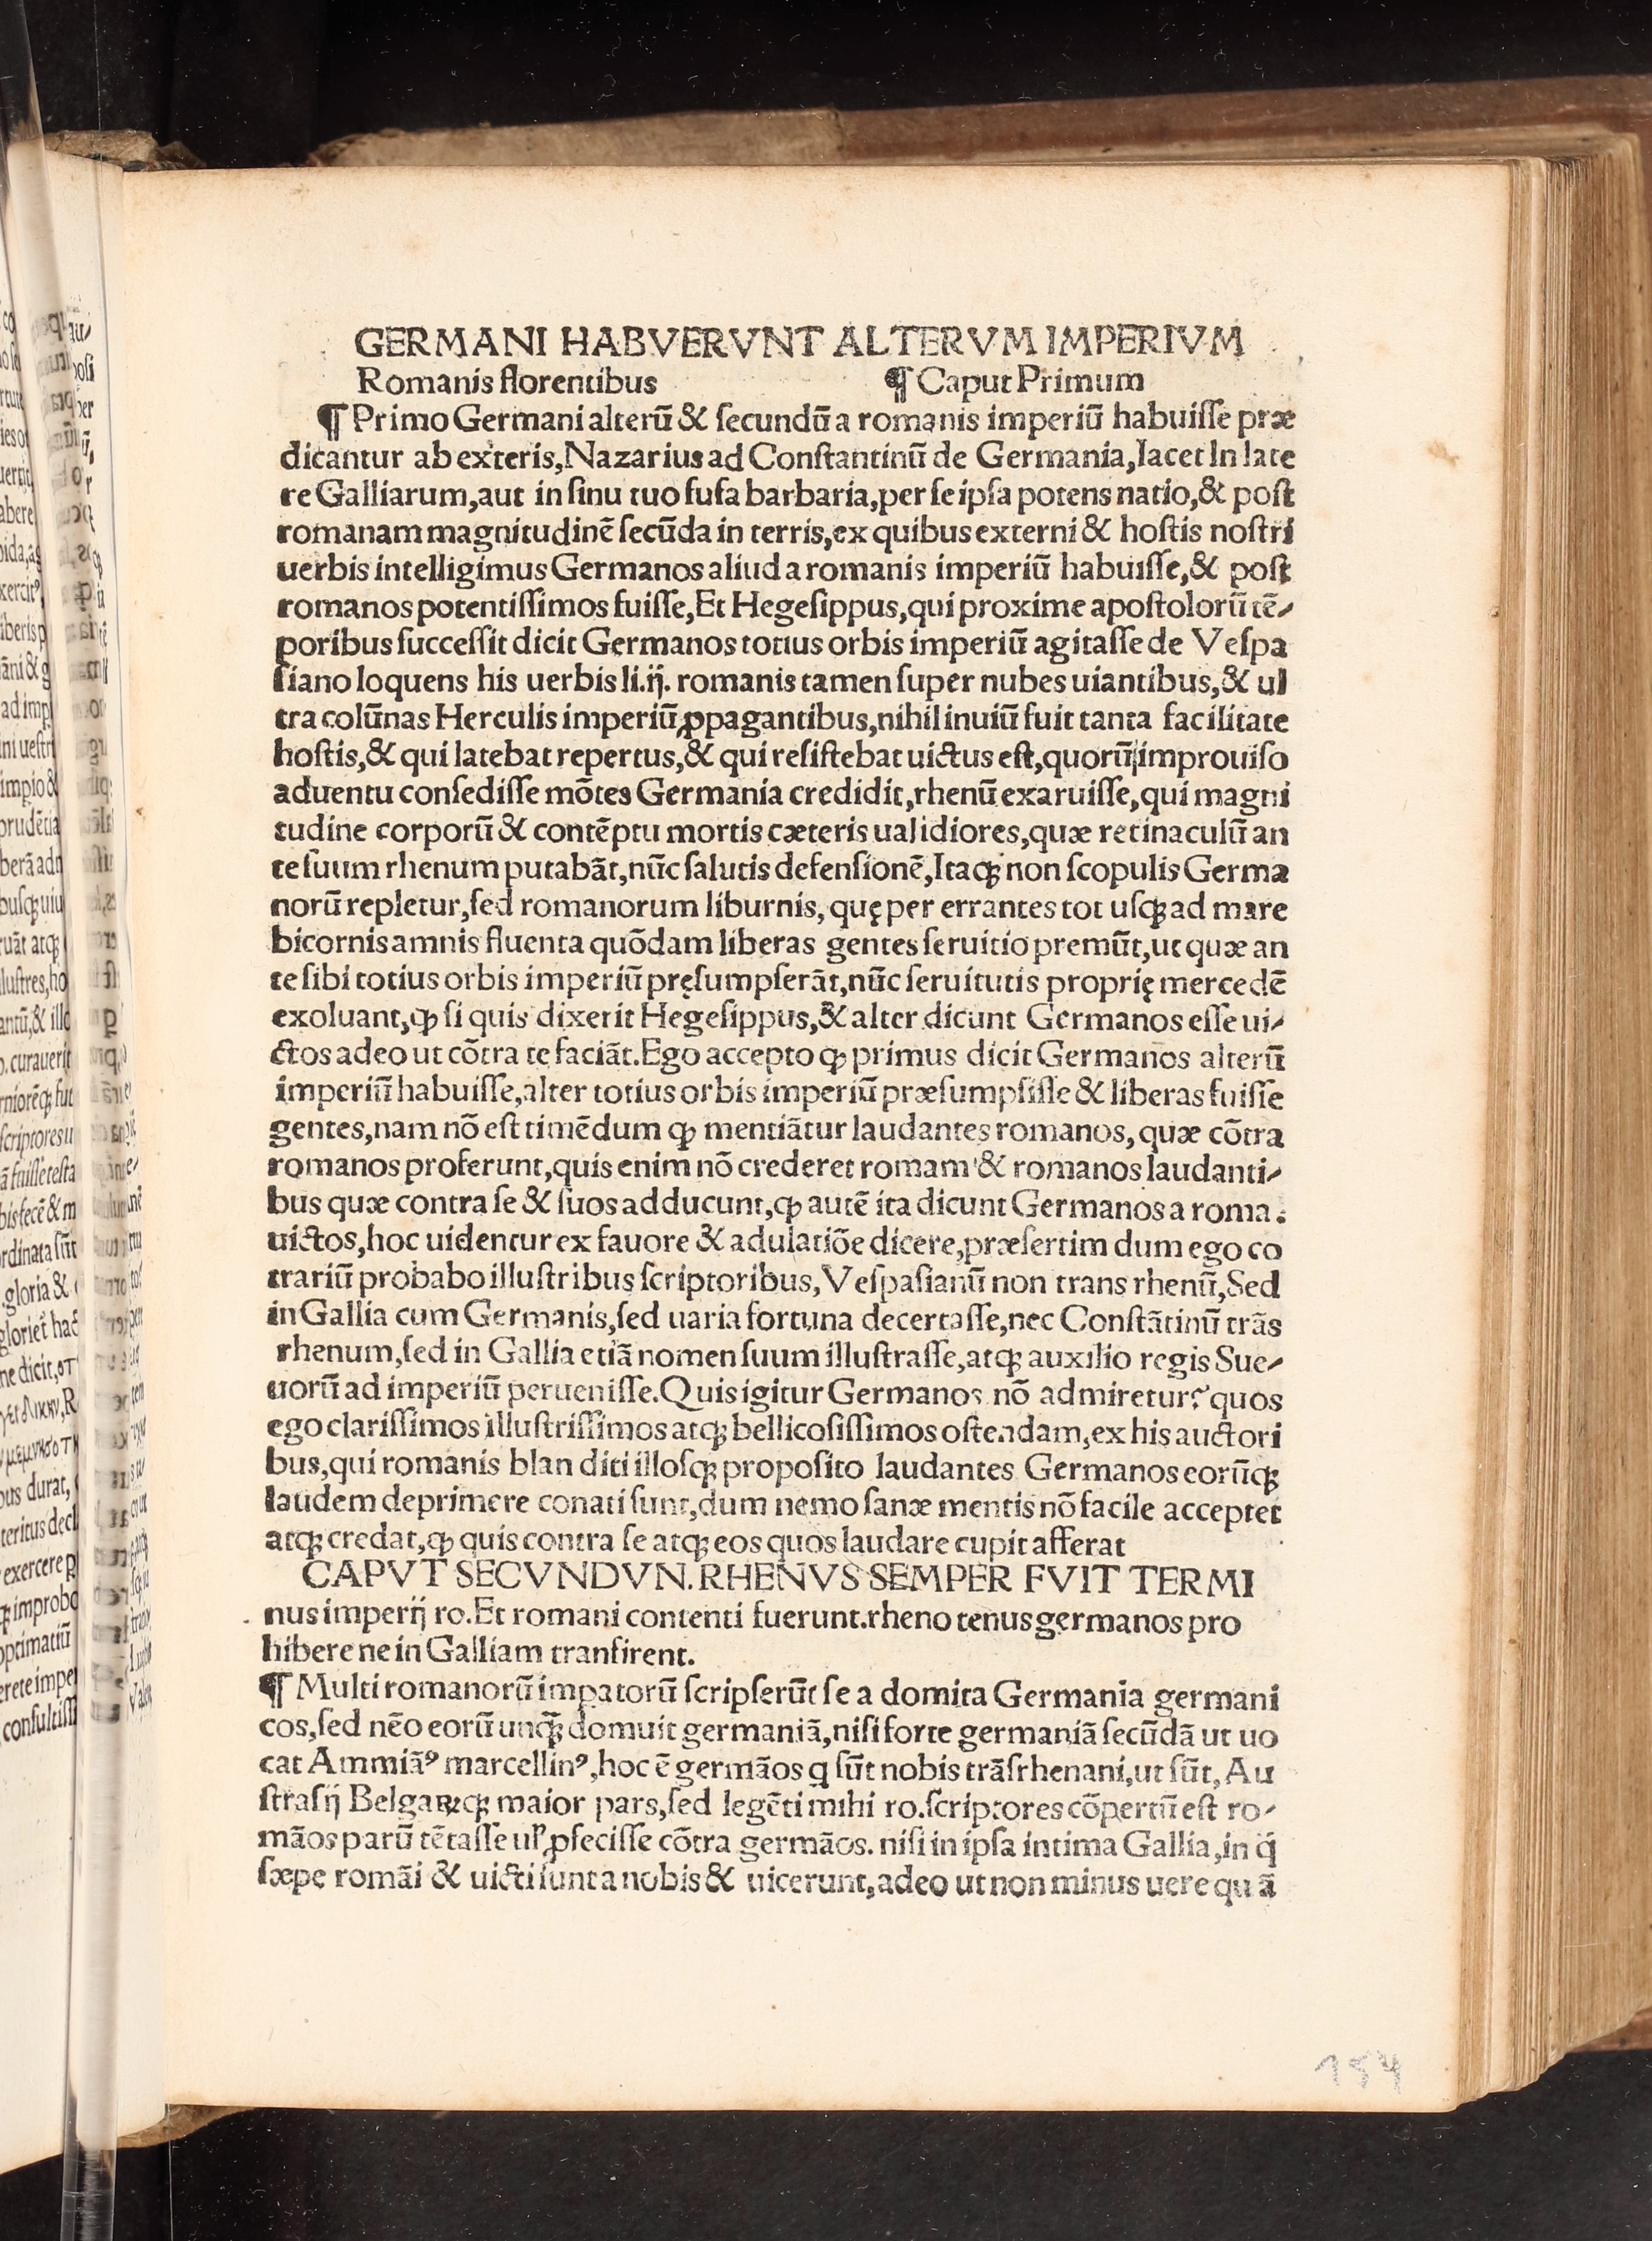 GERMANI HABVERVNT ALTERVM IMPERIVM
Romanis florentibus ¶ Caput Primum
¶ Primo Germani alterū & ſecundū a romanis imperiū habuiſſe præ
dicantur ab exteris, Nazarius ad Conſtantinū de Germania, Iacet In late
re Galliarum, aut in ſinu tuo fuſa barbaria, per ſe ipſa potens natio, & poſt
romanam magnitudinē ſecūda in terris, ex quibus externi & hoſtis noſtri
uerbis intelligimus Germanos aliud a romanis imperiū habuiſſe, & poſt
romanos potentiſſimos fuiſſe, Et Hegeſippus, qui proxime apoſtolorū tē⸗
poribus ſucceſſit dicit Germanos totius orbis imperiū agitaſſe de Veſpa
ſiano loquens his uerbis li.ij. romanis tamen ſuper nubes uiantibus, & ul
tra colūnas Herculis imperiū ꝓpagantibus, nihil inuiū fuit tanta facilitate
hoſtis, & qui latebat repertus, & qui reſiſtebat uictus eſt, quorū improuiſo
aduentu conſediſſe mōtes Germania credidit, rhenū exaruiſſe, qui magni
tudine corporū & contēptu mortis cæteris ualidiores, quæ retinaculū an
te ſuum rhenum putabāt, nūc ſalutis defenſionē, Itaqꝫ non ſcopulis Germa
norū repletur, ſed romanorum liburnis, quę per errantes tot uſqꝫ ad mare
bicornis amnis fluenta quōdam liberas gentes ſeruitio premūt, ut quæ an
te ſibi totius orbis imperiū pręſumpſerāt, nūc ſeruitutis proprię mercedē
exoluant, ꝙ ſi quis dixerit Hegeſippus, & alter dicunt Germanos eſſe ui⸗
ctos adeo ut cōtra te faciāt. Ego accepto ꝙ primus dicit Germanos alterū
imperiū habuiſſe, alter totius orbis imperiū præſumpſiſſe & liberas fuiſſe
gentes, nam nō eſt timēdum ꝙ mentiātur laudantes romanos, quæ cōtra
romanos proferunt, quis enim nō crederet romam & romanos laudanti⸗
bus quæ contra ſe & ſuos adducunt, ꝙ autē ita dicunt Germanos a roma.
uictos, hoc uidentur ex fauore & adulatiōe dicere, præſertim dum ego co
trariū probabo illuſtribus ſcriptoribus, Veſpaſianū non trans rhenū, Sed
in Gallia cum Germanis, ſed uaria fortuna decertaſſe, nec Conſtātinū trās
rhenum, ſed in Gallia etiā nomen ſuum illuſtraſſe, atqꝫ auxilio regis Sue⸗
uorū ad imperiū perueniſſe. Quis igitur Germanos nō admiretur? quos
ego clariſſimos illuſtriſſimos atqꝫ bellicoſiſſimos oſtendam, ex his auctori
bus, qui romanis blan diti illoſqꝫ propoſito laudantes Germanos eorūqꝫ
laudem deprimere conati ſunt, dum nemo ſanæ mentis nō facile acceptet
atqꝫ credat, ꝙ quis contra ſe atqꝫ eos quos laudare cupit afferat
CAPVT SECVNDVN. RHENVS SEMPER FVIT TERMI
nus imperij ro. Et romani contenti fuerunt. rheno tenus germanos pro
hibere ne in Galliam tranſirent.
¶ Multi romanorū impatorū ſcripſerūt ſe a domita Germania germani
cos, ſed nēo eorū unqꝫ̄ domuit germaniā, niſi forte germaniā ſecūdā ut uo
cat Ammiāꝰ marcellinꝰ, hoc ē germāos q ſūt nobis trāſrhenani, ut ſūt, Au
ſtraſij Belgaꝝqꝫ maior pars, ſed legēti mihi ro. ſcriptores cōpertū eſt ro⸗
māos parū tētaſſe ul' ꝓfeciſſe cōtra germāos. niſi in ipſa intima Gallia, in q̄
ſæpe romāi & uicti ſunt a nobis & uicerunt, adeo ut non minus uere qu ā
154